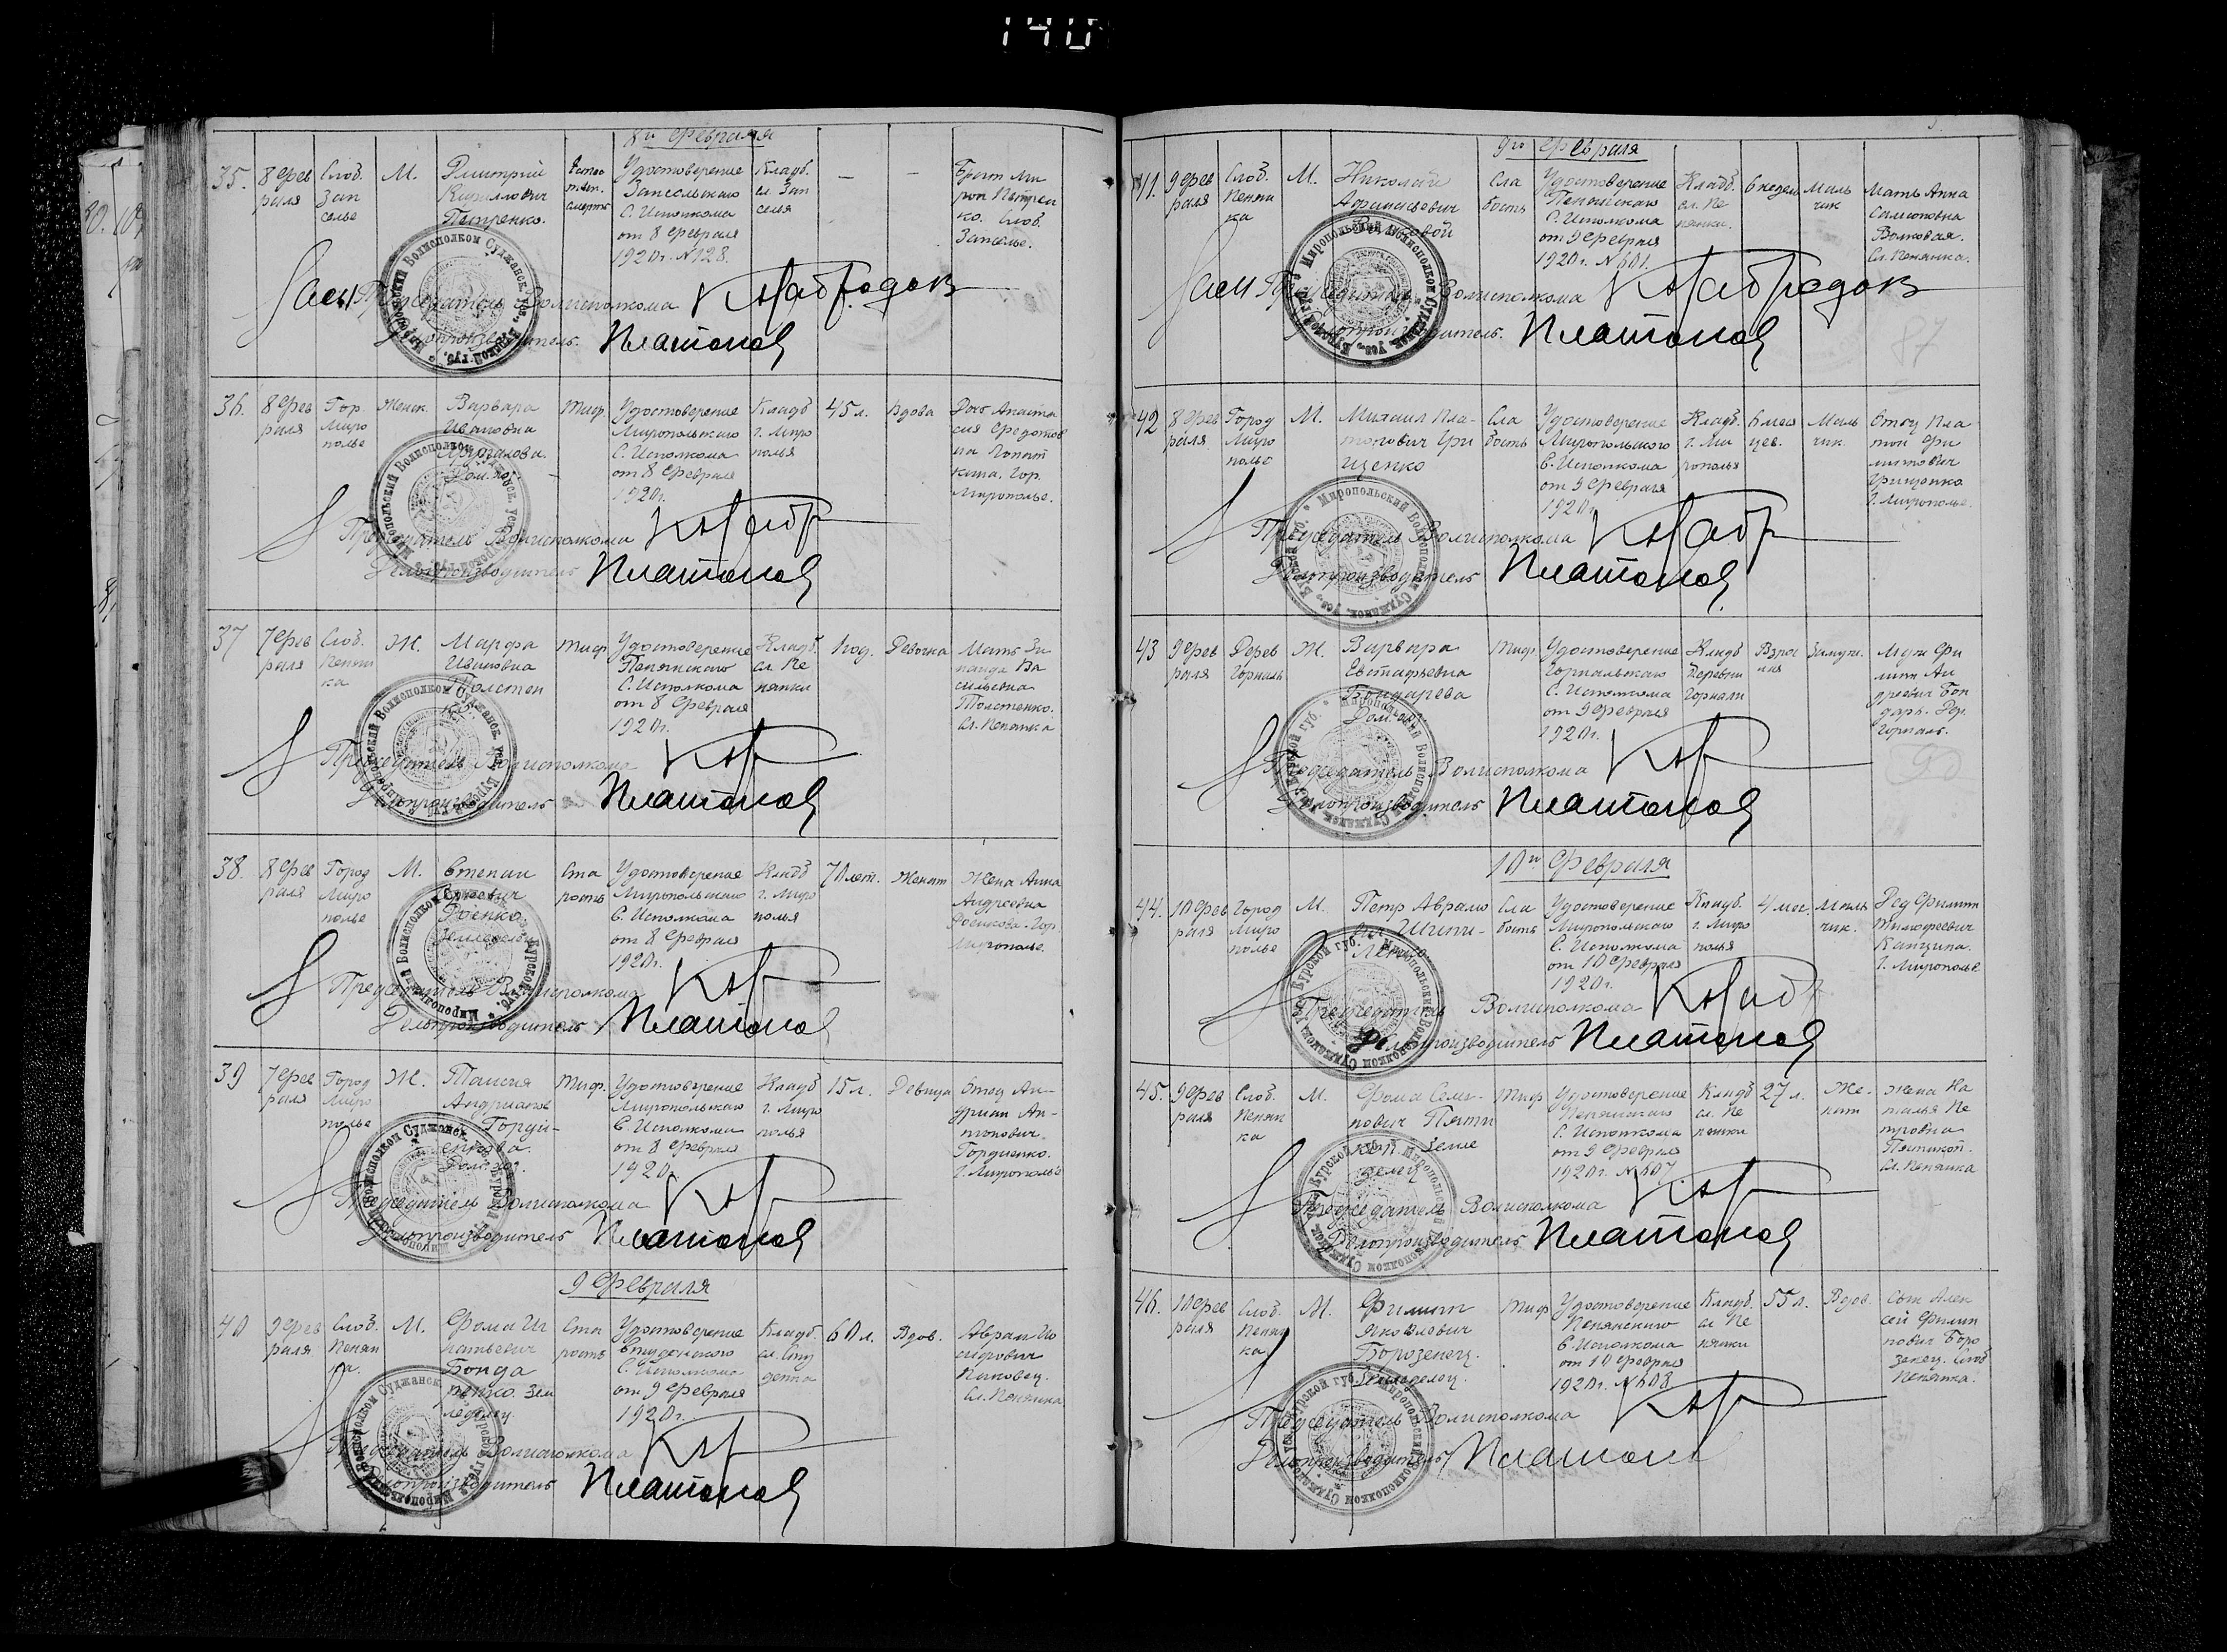 140
8го Февраля
35. 8 Фев
раля
Слоб.
Зап
селье
М.
Дмитрий
Кириллович
Петренко.
Удостоверение
Запсельского
С. Исполкома
от 8 Февраля
1920г. № 128.
Кладб.
сл. Зап
селья
—
—
Брат Ми
рон Петрен
ко. Слоб.
Запселье.
Председатель Волисполкома
Делопроизводитель. Платонов
36. 8 Фев
раля
Гор.
Миро
полье
Женск.
Варвара
Ивановна
Дом. хоз.
Тиф.
Удостоверение
Миропольского
С. Исполкома
от 8 Февраля
1920г.
Кладб
г. Миро
полья
45 л.
Вдова
Гор.
Мирополье.
Председатель Волисполкома
Делопроизводитель Платонов
37 7 Фев
раля
Слоб.
Пенян
ка
Ж.
Марфа
Ивановна
Толстен
ко.
Тиф
Удостоверение
Пенянского
С. Исполкома
от 8 Февраля
1920г.
Кладб.
сл. Пе
нянки
1 год.
Девочка
Мать Зи
наида Ва
сильевна
Толстенко.
Сл. Пенянка
Председатель Волисполкома
Делопроизводитель Платонов
38. 8 Фев
раля
Город
Миро
полье
М.
Степан
Роенко.
Земледелец
Ста
рость
Удостоверение
Миропольского
С. Исполкома
от 8 Февраля
1920г.
Кладб
г. Миро
полья
70 лет.
Женат
Жена Анна
Андреевна
Роенкова. Гор.
Мирополье.
Председатель Волисполкома
Делопроизводитель Платонов
39 7 Фев
раля
Город
Миро
полье
Ж.
Таисия
Андрианов
Горди-
енкова.
Дом. хоз.
Тиф.
Удостоверение
Миропольского
С. Исполкома
от 8 Февраля
1920г.
Кладб
г. Миро
полья
15 л.
Девица
Отец Ан-
дриан Ан-
тонович
Гордиенко.
г. Мирополье
Председатель Волисполкома
Делопроизводитель Платонов
9 Февраля
40 9 Фев
раля
Слоб.
Пенян
ка.
М.
Фома Иг
натьевич
Бонда
ренко. Зем
леделец
Ста
рость
Удостоверение
Студенского
С. Исполкома
от 9 Февраля
1920г.
Кладб.
сл. Сту
денка
60 л.
Вдов.
Сл. Пенянка
Председатель Волисполкома
Делопроизводитель Платонов
9го Февраля
41. 9 Фев
раля
Слоб.
Пенян
ка
М.
Николай
Афанасьевич
Волковой
Сла
бость
Удостоверение
Пенянского
С. Исполкома
от 9 Февраля
1920г. № 601.
Кладб.
сл. Пе
нянки.
6 недел
Маль
чик
Мать Анна
Самсоновна
Волковая.
Сл. Пенянка.
Председатель Волисполкома
Делопроизводитель. Платонов
87
42 8 Фев
раля
Город
Миро
полье
М.
Михаил Пла-
тонович Гри
щенко
Сла
бость
Удостоверение
Миропольского
С. Исполкома
от 9 Февраля
1920г.
Кладб.
г. Ми
рополья
6 меся
цев.
Маль
чик.
Отец Пла
тон Фи
липпович
Грищенко
г. Мирополье.
Председатель Волисполкома
Делопроизводитель Платонов
43 9 Фев
раля
Дерев
Горналь
Ж.
Варвара
Евстафьевна
Бондарева
Дом. хоз.
Тиф.
Удостоверение
Горнальского
С. Исполкома
от 9 Февраля
1920г.
Кладб
Деревни
Горнали
Взрос
лая
Замуж.
Муж Фи
липп Ан
дреевич Бон
дарь. Дер.
Горналь.
Председатель Волисполкома
Делопроизводитель Платонов
90
10го Февраля
44. 10 Фев
раля
Город
Миро
полье
М.
Петр Авраамо
Сла
бость
Удостоверение
Миропольского
С. Исполкома
от 10 Февраля
1920г.
Кладб.
г. Миро
полья
4 мес.
Маль
чик.
Дед Филипп
Тимофеевич
г. Мирополье
Председатель Волисполкома
Делопроизводитель Платонов
45. 9 Фев
раля
Слоб.
Пенян
ка
М.
Фома Семе-
нович Пяти
коп. Земле
делец
Тиф
Удостоверение
Пенянского
С. Исполкома
от 9 Февраля
1920г. № 607
Кладб
сл. Пе
нянки
27 л.
Же-
нат
Жена На
талья Пе
тровна
Пятикоп.
Сл. Пенянка
Председатель Волисполкома
Делопроизводитель Платонов
46. 10 Фев
раля
Слоб.
Пенян
ка
М.
Филипп
Яковлевич
Борозенец.
Земледелец.
Тиф
Удостоверение
Пенянского
С. Исполкома
от 10 Февраля
1920г. № 608
Кладб.
сл Пе
нянки
55 л.
Вдов.
Сын Алек
сей Филип
пович Боро
зенец. Слоб
Пенянка.
Председатель Волисполкома
Делопроизводитель Платонов